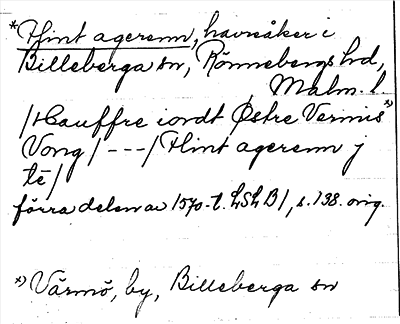 *Hint agerenn, havreåker i
Billeberga sn, Rönnebergs hd,
Malm. l.
/Hauffre iordt Østre Vermis*)
Vong/ ---/ Hint agerenn j
tē/
förra delen av 1570-t. LShB/, s. 138. orig.
*) Värmö, by, Billeberga sn